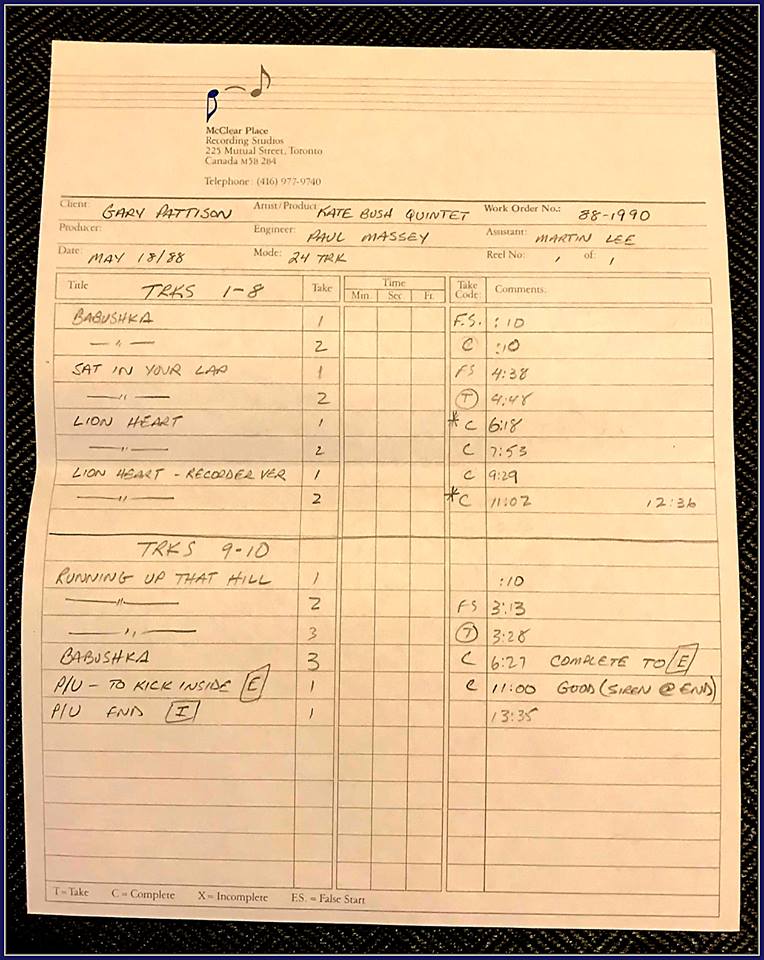 McClear Place
Recording Studios
225 Mutual Street, Toronto
Canada M5B 2B4
Telephone: (416) 977-9740
Client: GARY PATTISON Artist/Product: KATE BUSH QUINTET Work Order No.: 88-1990
Producer: Engineer: PAUL MASSEY Assistant: MARTIN LEE
Date: MAY 18/88 Mode: 24 TRK Reel No: 1 of: 1
Title TRKS 1-8 Take Time Min. Sec Fr. Take Code: Comments:
BABUSHKA 1 F.S. :10
—— " —— 2 C :10
SAT IN YOUR LAP 1 FS 4:38
—— " —— 2 T 4:48
LION HEART 1 * C 6:18
—— " —— 2 C 7:53
LION HEART - RECORDER VER 1 C 9:29
—— " —— 2 * C 11:02 12:36
TRKS 9-10
RUNNING UP THAT HILL 1 :10
—— " —— 2 FS 3:13
—— " —— 3 T 3:28
BABUSHKA 3 C 6:27 COMPLETE TO E
P/U - TO KICK INSIDE E 1 C 11:00 GOOD (SIREN @ END)
P/U END I 1 13:35
T = Take C = Complete X = Incomplete F.S. = False Start